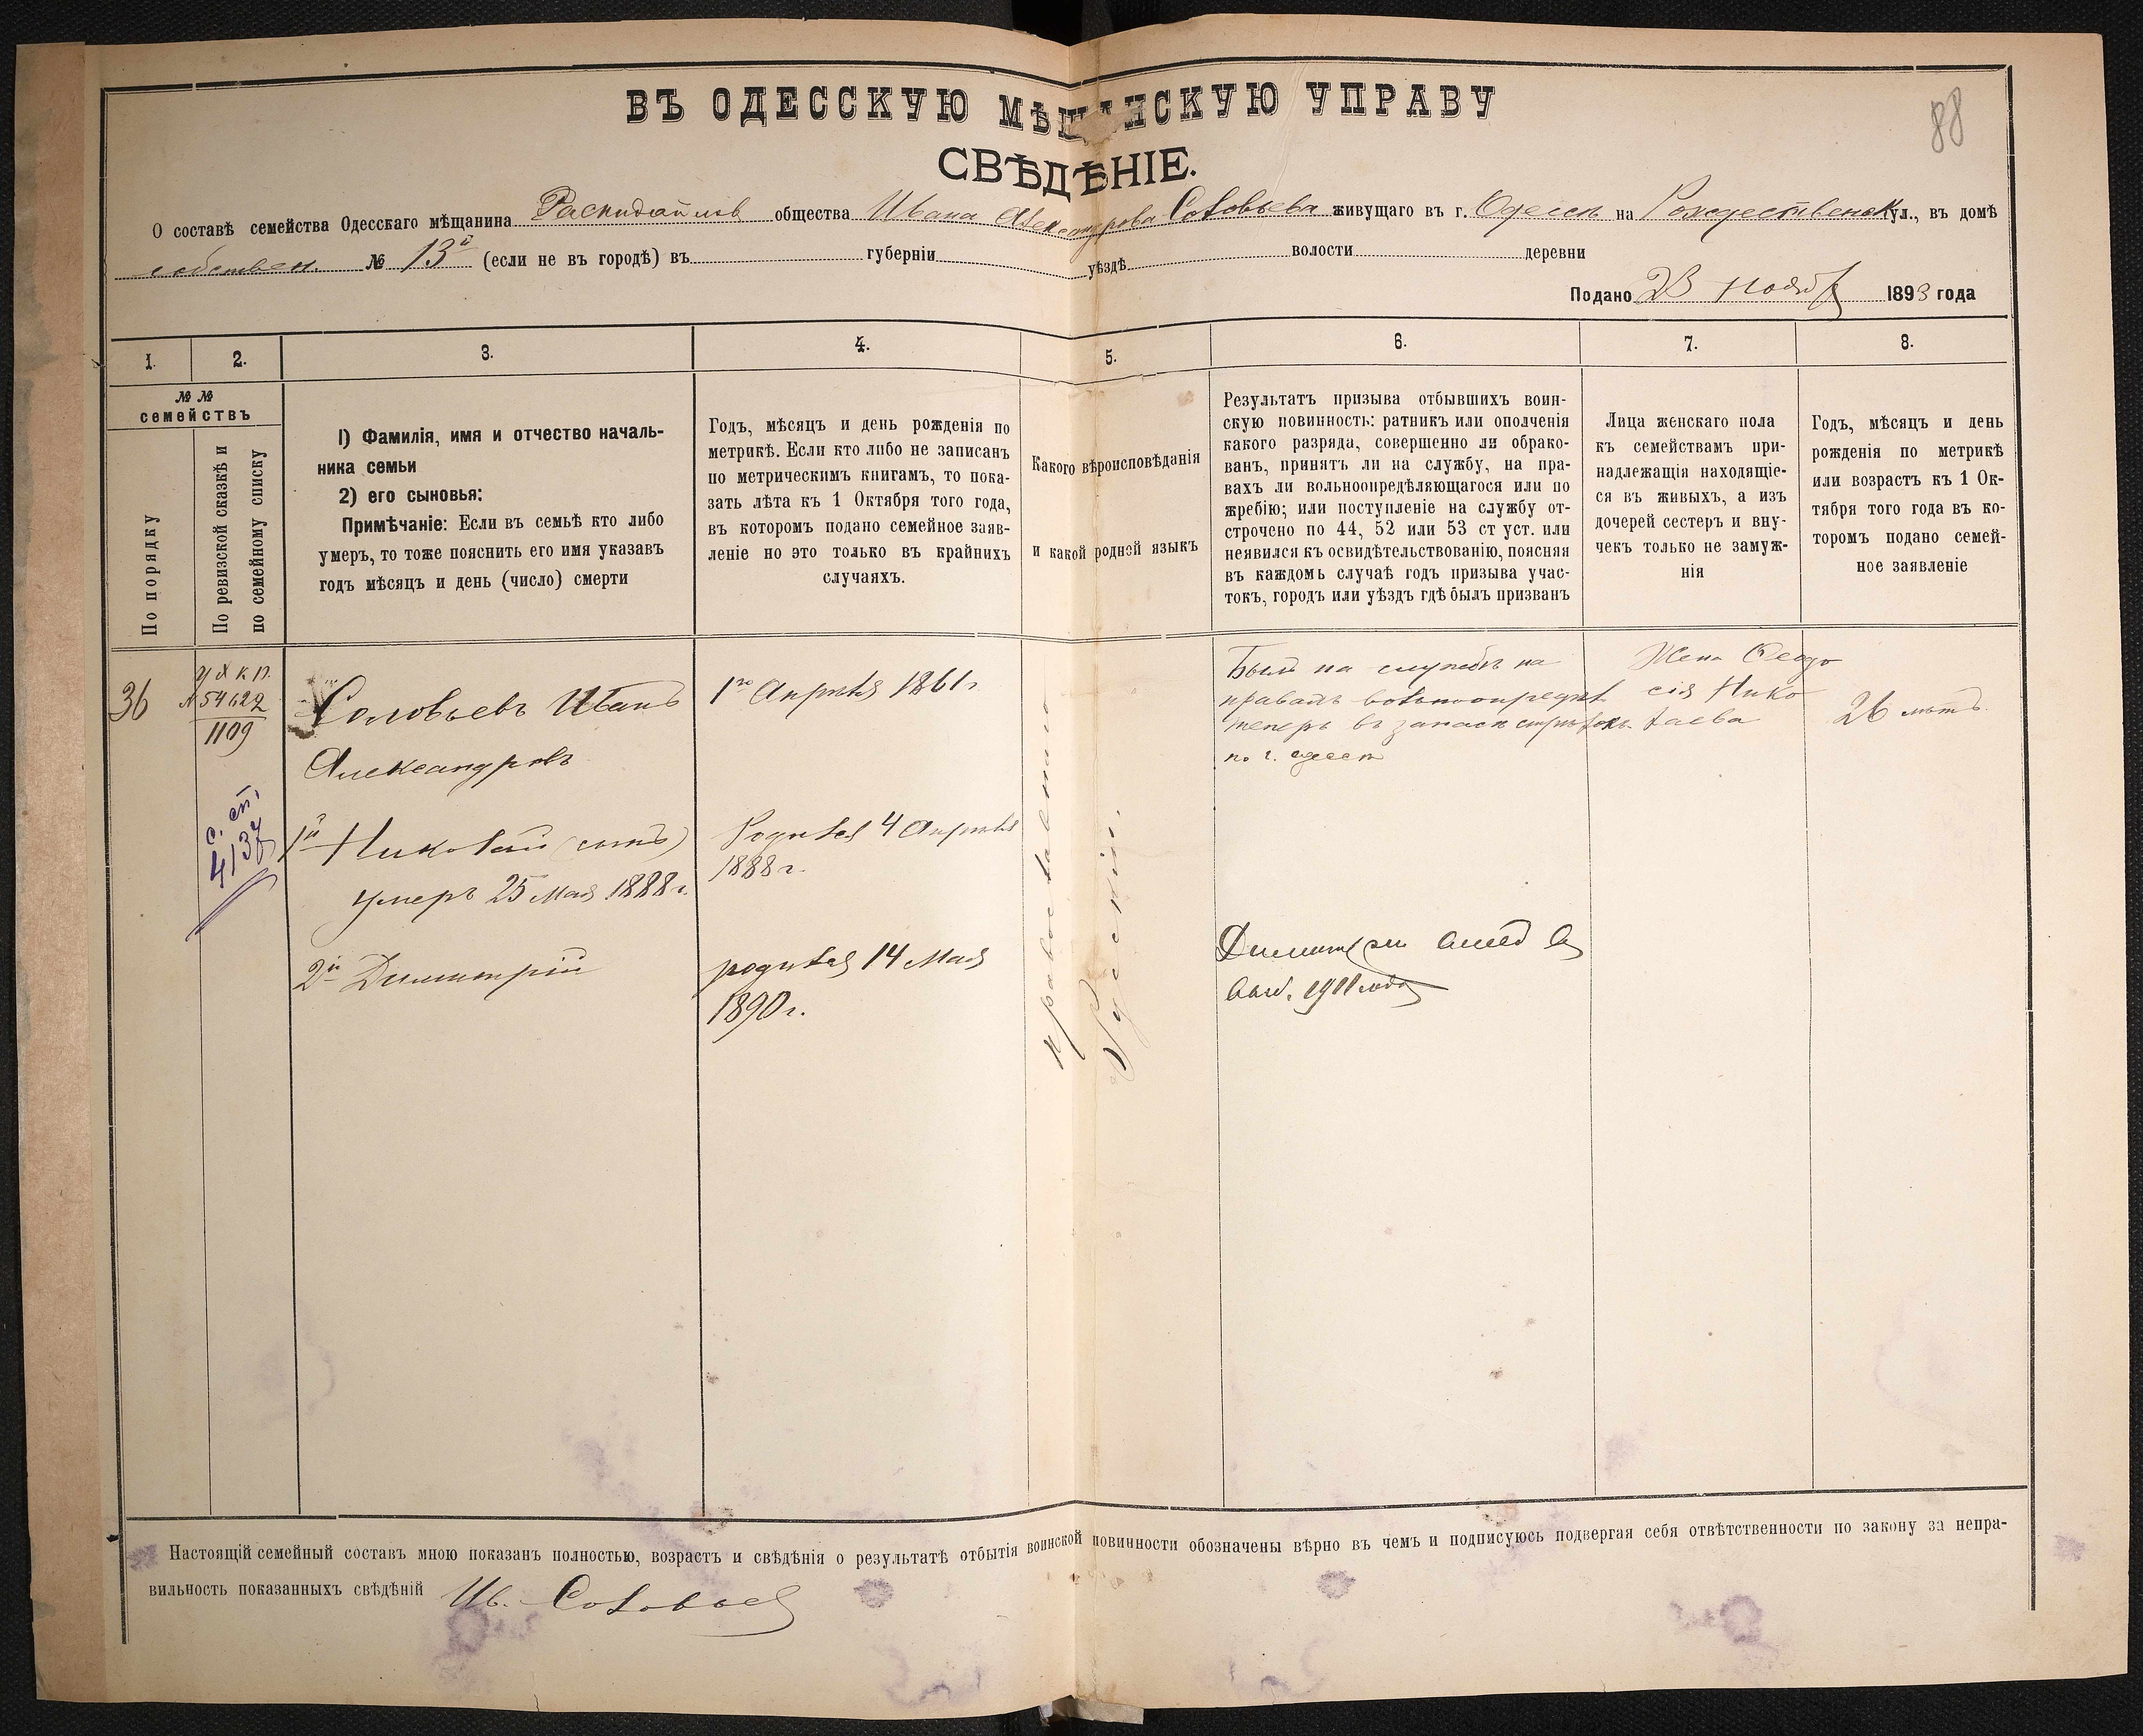 ВЪ ОДЕССКУЮ МѢЩАНСКУЮ УПРАВУ
88
СВѢДѢНІЕ.
О составѣ семейства Одесскаго мѣщанина Раскидайлов общества Ивана Александрова Соловьева живущаго въ г. Одессѣ на Рождественск ул., въ домѣ
собствен. № 13й (если не въ городѣ) въ губерніи уѣздѣ волости деревни
Подано 23 Ноября 1893 года
1. 2. 3. 4. 5. 6. 7. 8.
№ №
семействъ
По порядку
По ревизской сказкѣ и
по семейному списку
1) Фамилія, имя и отчество началь-
ника семьи
2) его сыновья:
Примѣчаніе: Если въ семьѣ кто либо
умеръ, то тоже пояснить его имя указавъ
годъ мѣсяцъ и день (число) смерти
Годъ, мѣсяцъ и день рожденія по
метрикѣ. Если кто либо не записанъ
по метрическимъ книгамъ, то пока-
зать лѣта къ 1 Октября того года,
въ которомъ подано семейное заяв-
леніе но это только въ крайнихъ
случаяхъ.
Какого вѣроисповѣданія
и какой родной языкъ
Результатъ призыва отбывшихъ воин-
скую повинность: ратникъ или ополченія
какого разряда, совершенно ли обрако-
ванъ, принятъ ли на службу, на пра-
вахъ ли вольноопредѣляющагося или по
жребію; или поступленіе на службу от-
строчено по 44, 52 или 53 ст уст. или
неявился къ освидѣтельствованію, поясняя
въ каждомъ случаѣ годъ призыва учас-
токъ, городъ или уѣздъ гдѣ былъ призванъ
Лица женскаго пола
къ семействамъ при-
надлежащія находящіе-
ся въ живыхъ, а изъ
дочерей сестеръ и вну-
чекъ только не замуж-
нія
Годъ, мѣсяцъ и день
рожденія по метрикѣ
или возрастъ къ 1 Ок-
тября того года въ ко-
торомъ подано семей-
ное заявленіе
36
№ 54622
1109
с. сп.
4137
Соловьевъ Иванъ
Александровъ
1го Апрѣля 1861 г.
православнаго
Русскій.
Былъ на службѣ на
правахъ вольноопредѣл
теперь въ запасѣ стрѣлокъ.
по г. Одессѣ
Жена Ѳеодо
сія Нико
лаева
26 лѣтъ.
1й Николай (сынъ)
умеръ 25 Мая 1888 г.
Родился 4 Апрѣля
1888 г.
2й Димитрій
родился 14 Мая
1890 г.
Димитрій
1911 года
Настоящій семейный составъ мною показанъ полностью, возрастъ и свѣдѣнія о результатѣ отбытія воинской повинности обозначены вѣрно въ чемъ и подписуюсь подвергая себя отвѣтственности по закону за непра-
вильность показанныхъ свѣдѣній Ив. Соловьев